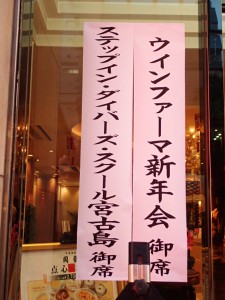 ウインファーマ新年会 御席
ステップイン・ダイバーズ・スクール宮古島 御席
点心